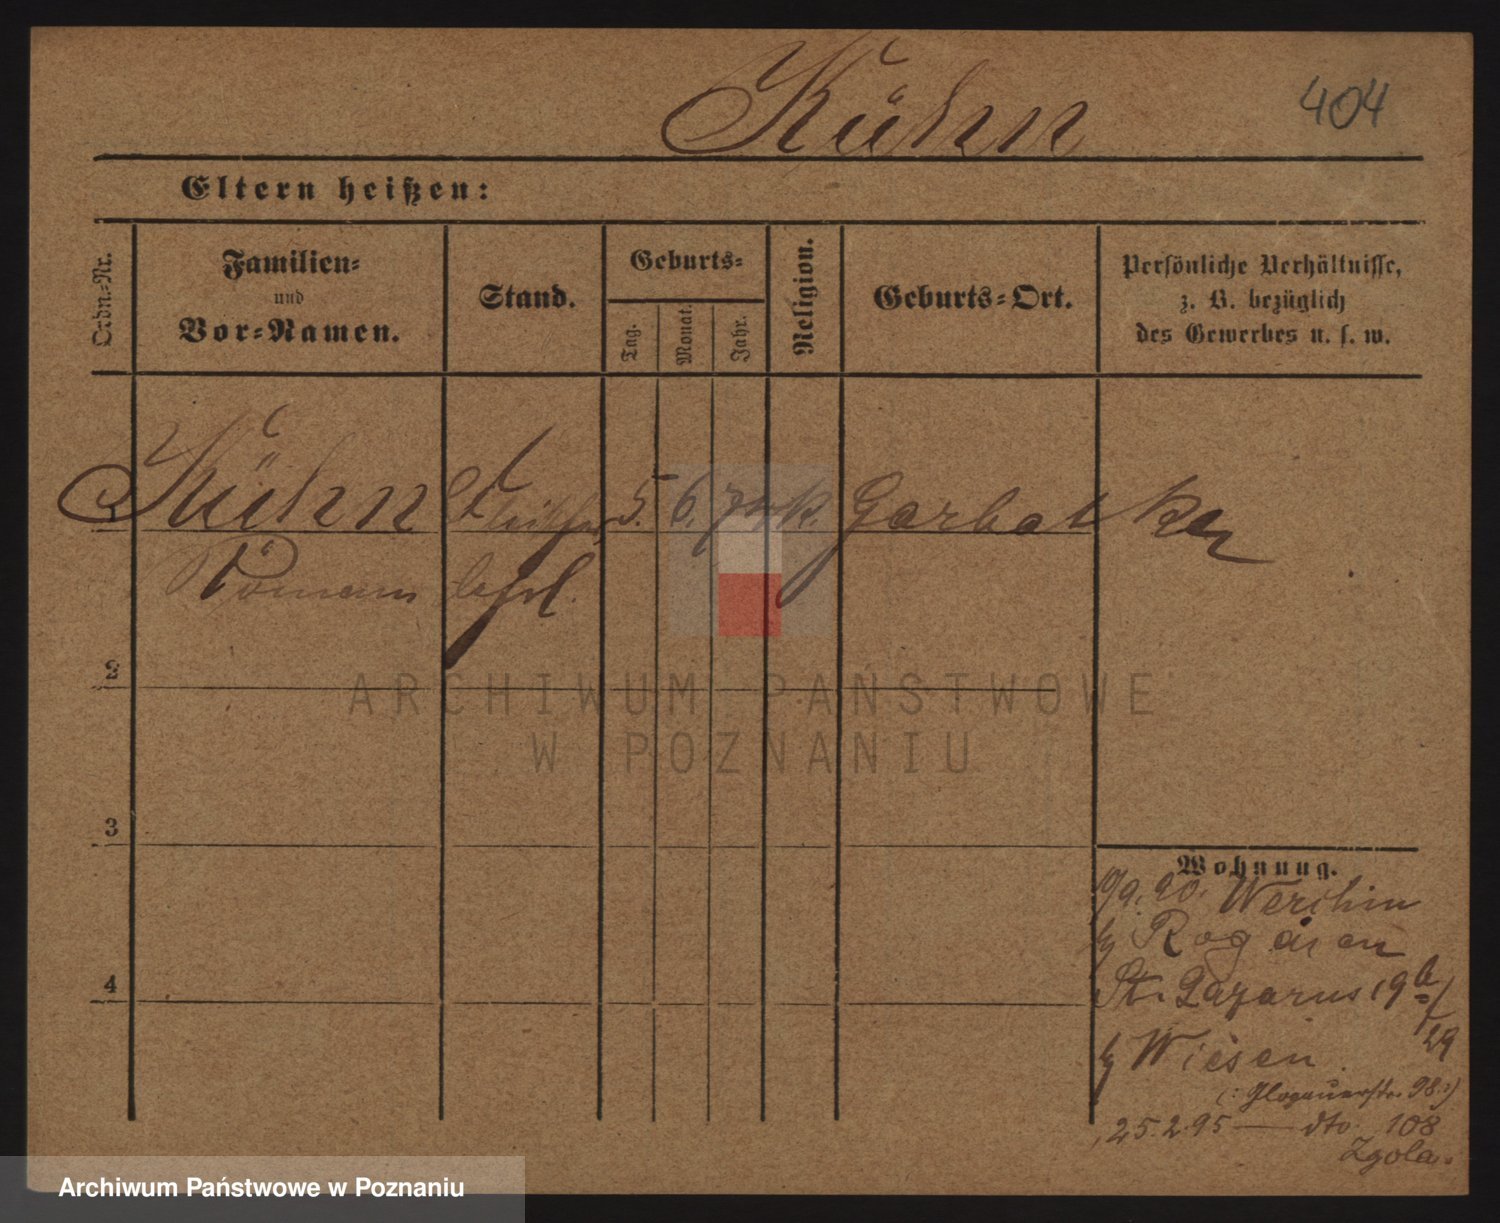 Kühn 404
Eltern heißen:
Ordn.-Nr.
Familien-
und
Vor-Namen.
Stand.
Geburts-
Tag.
Monat.
Jahr.
Religion.
Geburts-Ort.
Persönliche Verhältnisse,
z. B. bezüglich
des Gewerbes u. s. w.
Kühn 5. 6. 74 k. Garbatka
Roman
2
3
4
Wohnung.
Werchin
b/ Rogasen
St. Lazarus 19
b/ Wiesen.
(: Glogauerstr. 98 :)
25.2.95 — dto. 108
Zgola.
ARCHIWUM PAŃSTWOWE
W POZNANIU
Archiwum Państwowe w Poznaniu